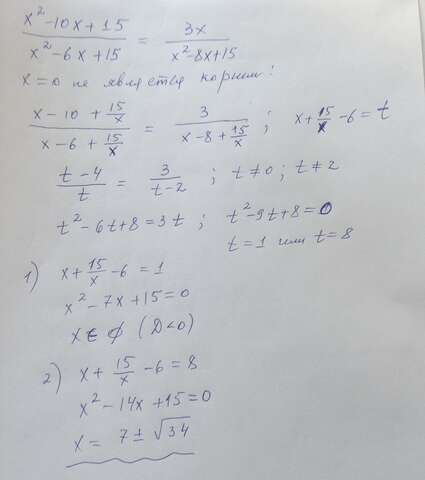 x²-10x+15/x²-6x+15 = 3x/x²-8x+15
x=0 не является корнем!
x-10+15/x / x-6+15/x = 3/x-8+15/x ; x+15/x-6=t
t-4/t = 3/t-2 ; t≠0; t≠2
t²-6t+8=3t ; t²-9t+8=0
t=1 или t=8
1) x+15/x-6=1
x²-7x+15=0
x∈∅ (D<0)
2) x+15/x-6=8
x²-14x+15=0
x= 7±√34